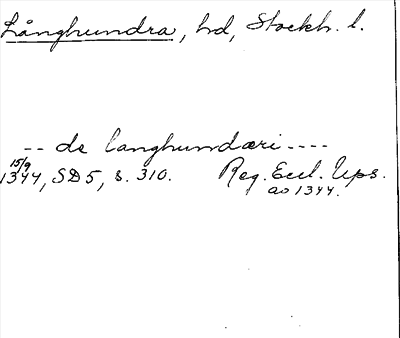 Långhundra, hd, Stockh. l.
-- de langhundæri ----
15/9
1344, SD 5, s. 310. Reg. Eccl. Ups.
ao 1344.